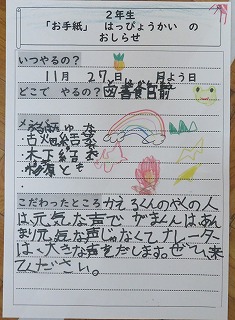 ２年生
「お手紙」 はっぴょうかい の
おしらせ
いつやるの？
11月 27日 月よう日
どこで やるの？図書館前
メンバー
古畑結
木下結
とも
こだわったところ かえるくんのやくの人
は、元気な声で がまくんは、あん
まり元気な声じゃなくて ナレーター
は、大きな声をだします。ぜひ来
てください。